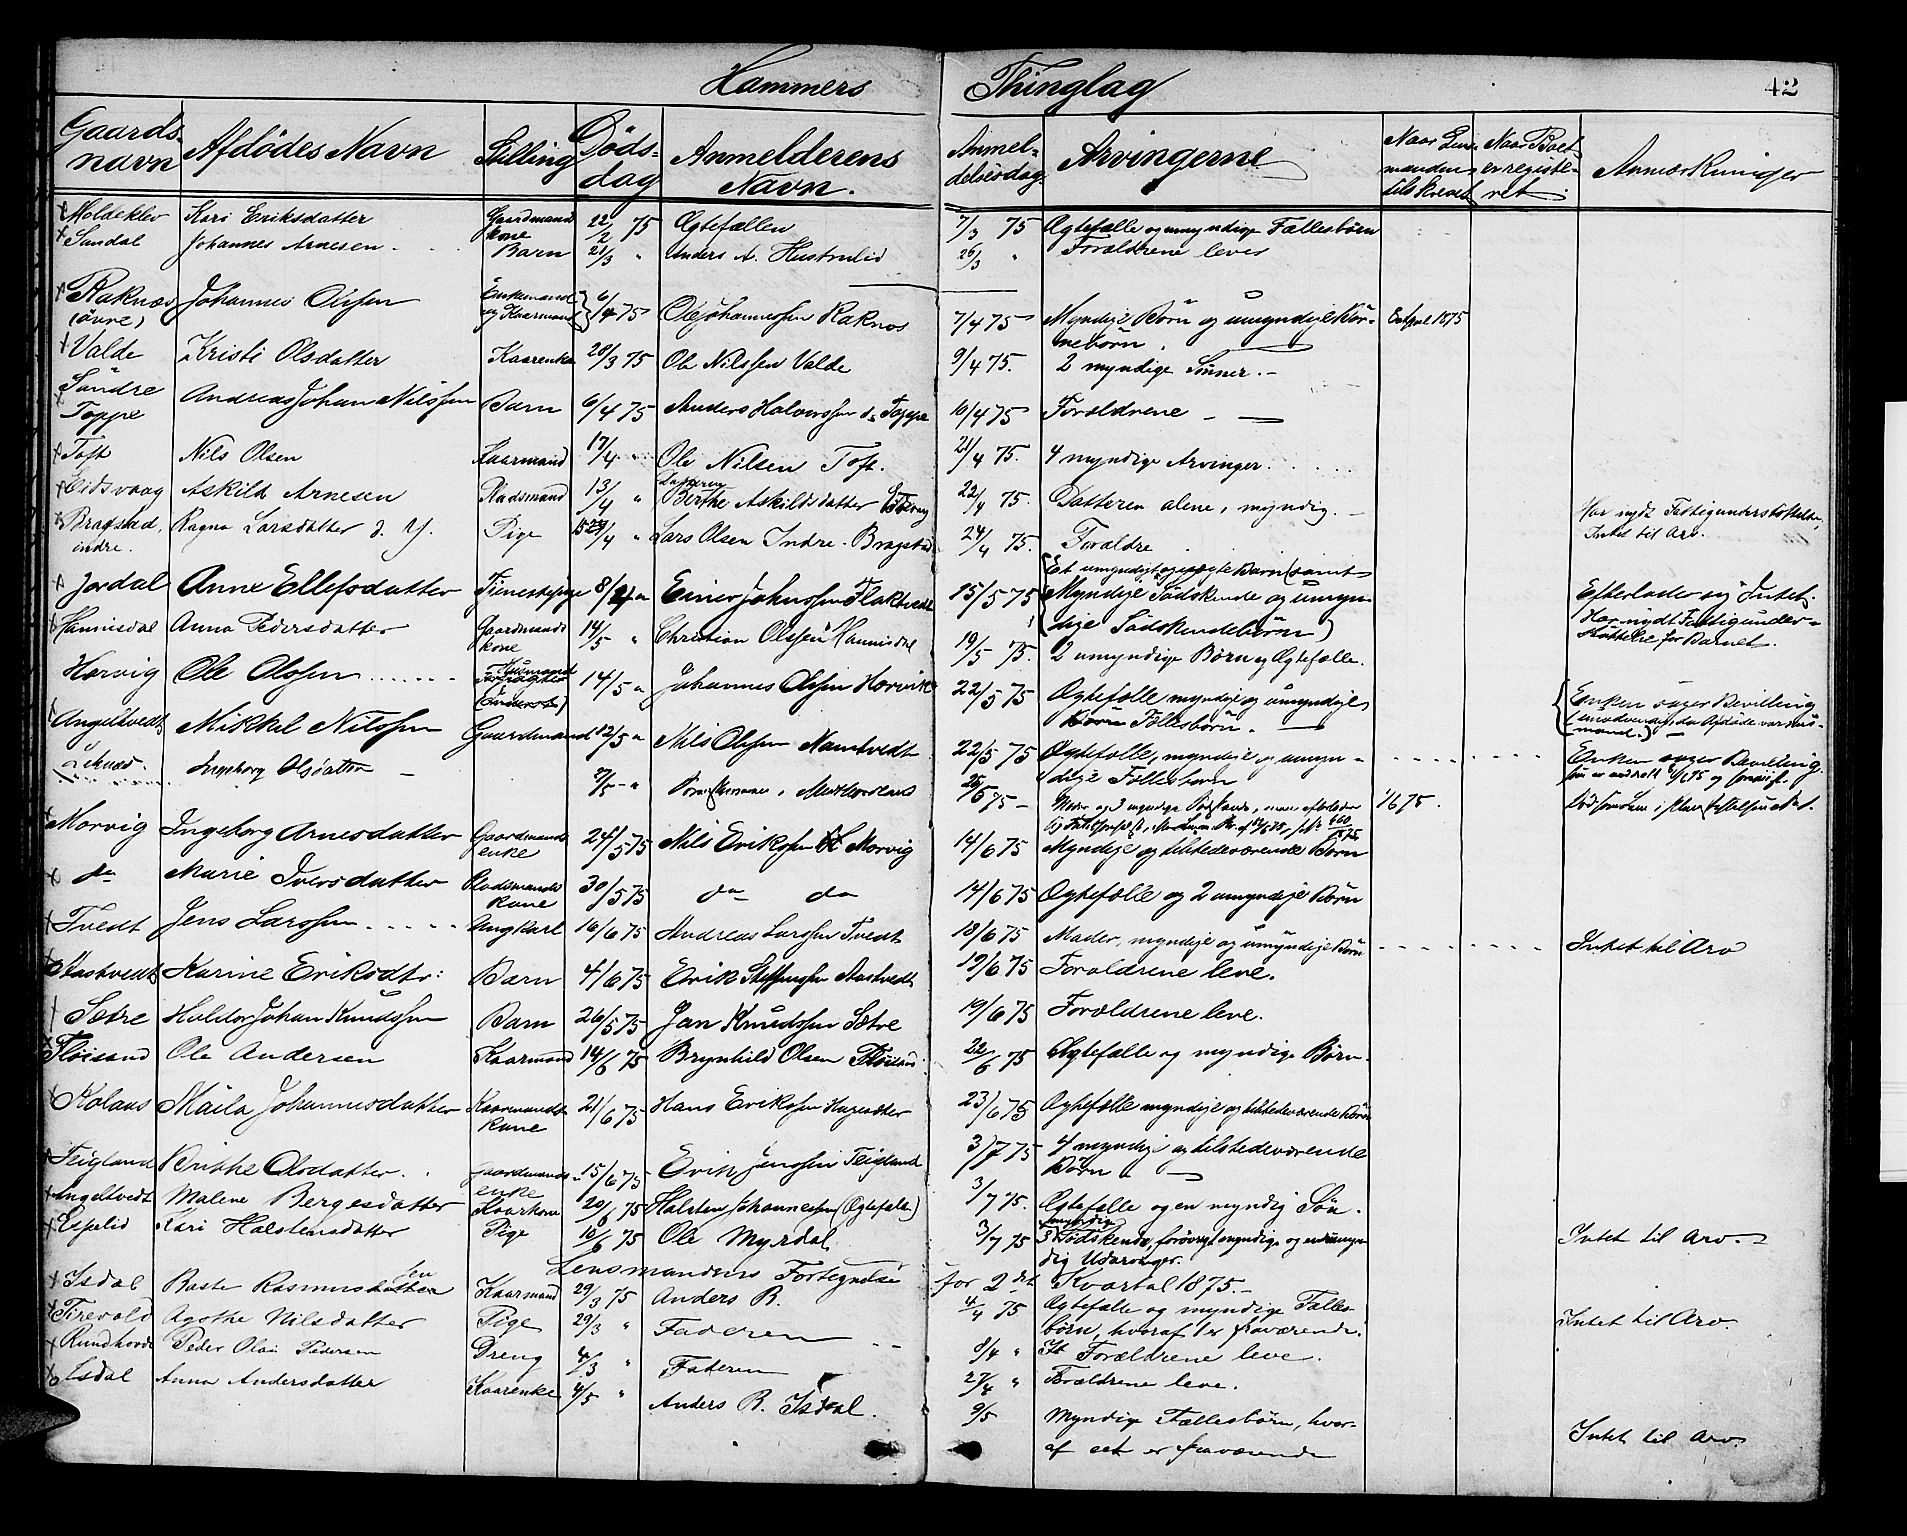 Hammers Thinglag 42
Gaards-navn | Afdödes Navn | Stilling | Döds-dag | Anmelderens Navn. | Anmel-delsesdag | Arvingerne | Naar Lens-manden tilskrevet | Naar Boet er registe-ret | Anmærkninger
Moldeklev Kari Eriksdatter Gaardmand kone 22/2 75 Ægtefællen 7/3 75 Ægtefælle og umyndige Fællesbörn
Sundal Johannes Arnesen Barn 21/3 " Anders A. Hustrulid 26/3 " Forældrene lever
Raknæs (övre) Johannes Olssen Enkemand og Kaarmand 6/4 75 Ole Johannessen Raknæs 7/4 75 Myndige Börn og umyndige Bör-neborn. 1875
Valde Kristi Olsdatter Kaarenke 20/3 75 Ole Nilssen Valde 9/4 75. 2 myndige Sönner.-
Söndre Toppe Andreas Johan Nilssen Barn 6/4 75 Anders Halvorssen Toppe 16/4 75 Forældrene
Toft Nils Olsen Kaarmand 17/4 " Ole Nilsen Toft. 21/4 75. 4 myndige Arvinger.
Eidsvaag Askild Arnesen Pladsmand 13/4 " Datteren Birthe Askildsdatter Eidsvaag 22/4 75. Datteren alene, myndig. Har nydt Fattigunderstöttelse
Bragstad, indre. Ragna Larsdatter d. y. Pige /4 " Lars Olsen Indre-Bragstad 24/4 75. Forældre Intet til Arv.
Jordal Anne Ellefsdatter Tienestepige 8/ " Einer Johnssen Flaktvedt 15/5 75 Et umyndigt uægte Barn (samt Myndige Södskende og umyn-dige Södskendebörn) Efterlader sig Intet. Har nydt Fattigunder-stöttelse for Barnet.
Hannisdal Anna Pedersdatter Gaardmands kone 14/5 " Christian Olssen Hannisdal 19/5 75. 2 umyndige Börn og Ægtefælle.
Horvig Ole Olssen Husmand 14/5 " Johannes Olssen Horvik 22/5 75 Ægtefælle, myndige og umyndige Börn Fællesbörn. Enken söger Bevilling (unödvendig, da Afdöde var Hus-mand.)
Angeltvedt Mikkel Nilssen Gaardmand 12/5 " Nils Olssen Namtvedt 22/5 75 Ægtefælle, myndige og umyn-dige Fællesbörn Enken söger Bevilling.
Ingeborg Olsdatter 7/5 " 26/5 75 1/6 75.
Morvig Ingeborg Arnesdatter Gaardmands enke 24/5 75 Nils Erikssen Morvig 14/6 75 Myndige og tilstedeværende Börn
do Marie Iversdatter Pladsmands kone 30/5 75 do do 14/6 75 Ægtefælle og 2 umyndige Börn
Tvedt Jens Larssen Ungkarl 16/6 75 Andreas Larssen Tvedt 18/6 75 Moder, myndige og umyndige Börn Intet til Arv
Aastvedt Karine Eriksdtr: Barn 4/6 75 Erik Steffenssen Aastvedt 19/6 75 Forældrene leve.
Sætre Haldor Johan Knudssen Barn 26/5 75 Jan Knudssen Sætre 19/6 75 Forældrene leve.
Flöisand Ole Andersen Kaarmand 14/6 75 Brynhild Olsen Flöisand 22/6 75 Ægtefælle og myndige Börn.
Kolaas Maila Johannesdatter Kaarmands kone 21/6 75 Hans Erikssen Hagesæter 23/6 75 Ægtefælle myndige og tilstedeværende Börn
Teigland Birthe Olsdatter. Gaardmands enke 15/6 75 Erik Jenssen Teigland 3/7 75 4 myndige og tilstedeværende Börn.
Angeltvedt Malene Bergesdatter Kaarkone 20/6 75 Halsten Johannessen (Ægtefælle) 3/7 75. Ægtefælle og en myndig Sön.
Espelid Kari Halstensdatter Pige 10/6 75 Ole Myrdal 3/7 75 myndig 3 Södskende, forövrigt myndige og en umyn-dig Udarvinger. Intet til Arv.
Lensmandens Fortegnelse for 2det Kvartal 1875.-
Isdal Baste Rasmussen Kaarmand 29/3 75 Anders B. 4/4 75 Ægtefælle og myndige Fælles-börn, hvoraf 1 er fraværende. Intet til Arv.
Tirevold Agathe Nilsdatter Pige 29/3 " Faderen 8/4 " Forældrene leve.
Rundhovde Peder Olai Pedersen Dreng 4/3 " Faderen 27/4 " Forældrene leve.
Isdal Anna Andersdatter Kaarenke 4/5 " Anders B. Isdal. 9/5 Myndige Fællesbörn, hvor-af eet er fraværende Intet til Arv.